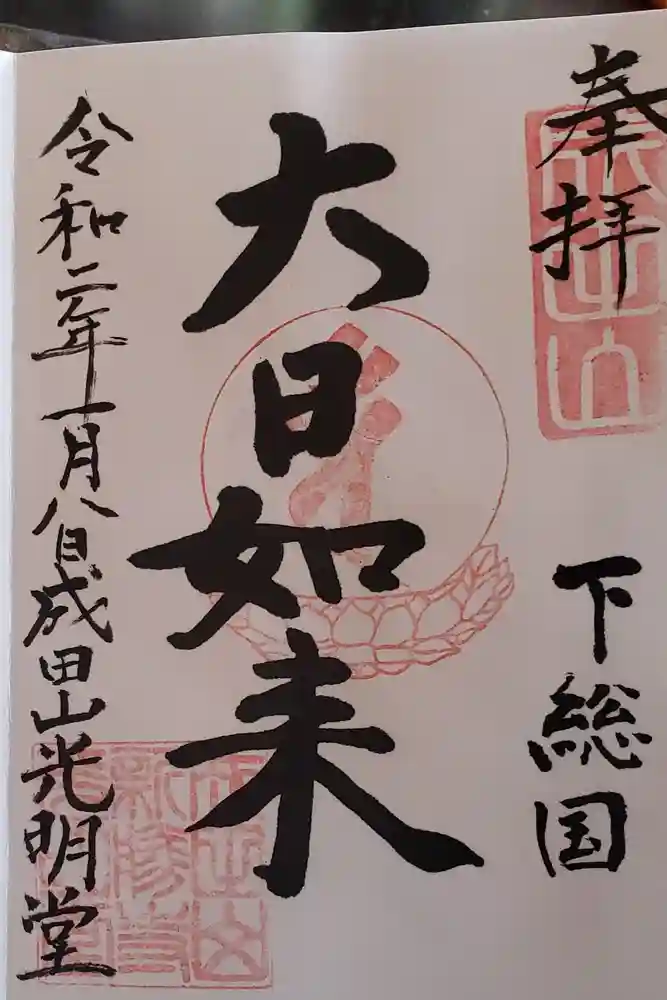 奉拝
下総国
大日如来
令和二年一月八日成田山光明堂
成田山